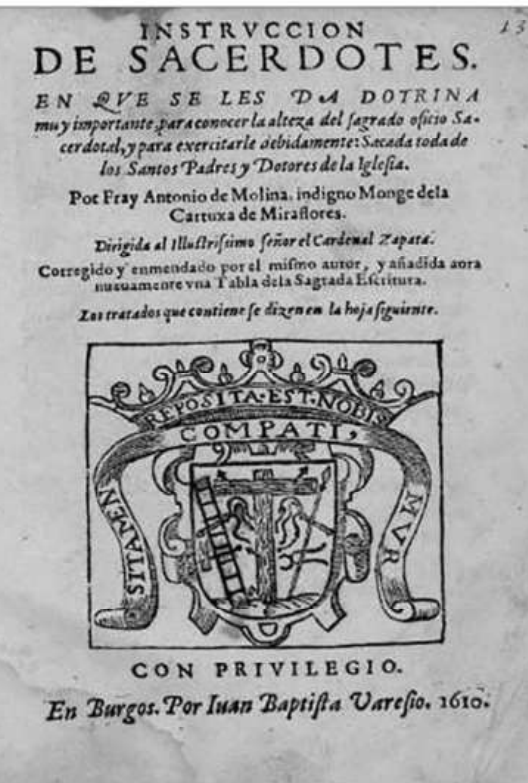 13
INSTRVCCION
DE SACERDOTES.
EN QVE SE LES DA DOTRINA
muy importante, para conocer la alteza del ſagrado oficio Sa-
cerdotal, y para exercitarle debidamente: Sacada toda de
los Santos Padres y Dotores de la Igleſia.
Por Fray Antonio de Molina, indigno Monge dela
Cartuxa de Miraflores.
Dirigida al Illuſtriſsimo ſeñor el Cardenal Zapata.
Corregido y enmendado por el miſmo autor, y añadida aora
nueuamente vna Tabla dela Sagrada Eſcritura.
Los tratados que contiene ſe dizen en la hoja ſiguiente.
REPOSITA·EST·NOBIS
COMPATI,
SITAMEN
MVR
CON PRIVILEGIO.
En Burgos. Por Iuan Baptiſta Vareſio. 1610.